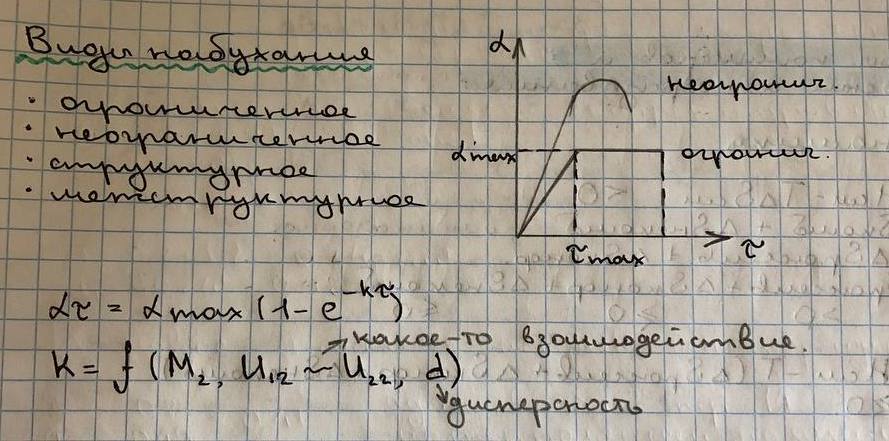 Виды набухания
· ограниченное
· неограниченное
· структурное
· межструктурное
α
неогранич.
αmax
огранич.
τmax
τ
ατ = αmax (1 - e^-kτ)
→ какое-то взаимодействие.
K = f (M₂, U₁₂ ~ U₂₂, d)
дисперсность